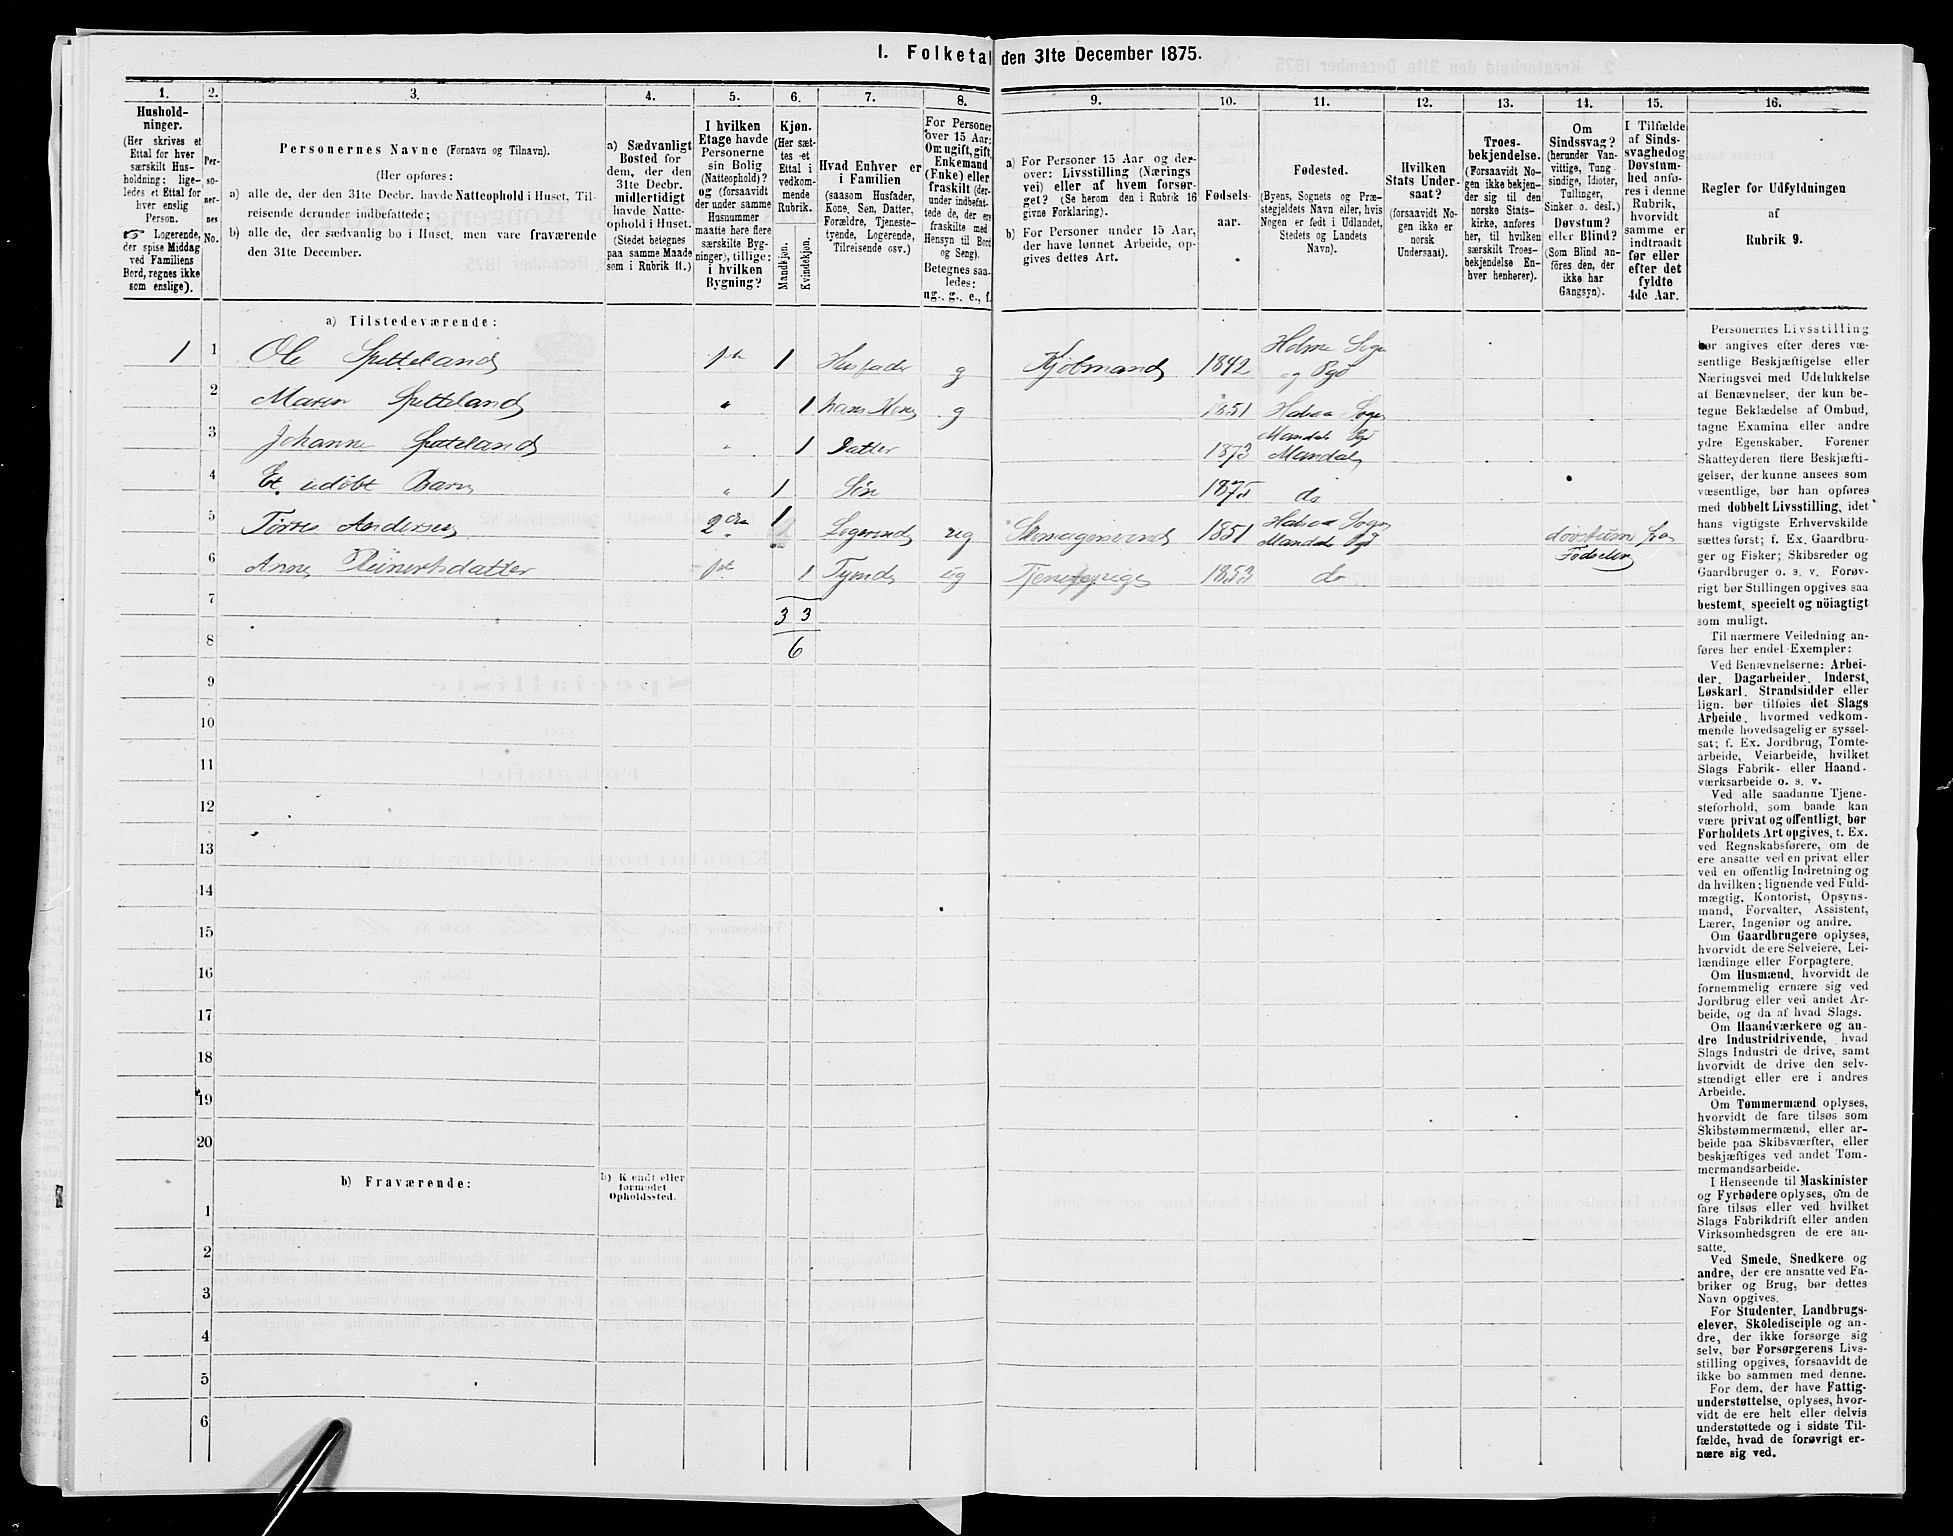 I. Folketal den 31te December 1875.
1. 2. 3. 4. 5. 6. 7. 8. 9. 10. 11. 12. 13. 14. 15. 16.
Hushold-
ninger.
(Her skrives et
Ettal for hver
særskilt Hus-
holdning; lige-
ledes et Ettal for
hver enslig
Person.
☞ Logerende,
der spise Middag
ved Familiens
Bord, regnes ikke
som enslige).
Per-
so-
ner-
nes
No.
Personernes Navne (Fornavn og Tilnavn).
(Her opføres:
a) alle de, der den 31te Decbr. havde Natteophold i Huset, Til-
reisende derunder indbefattede;
b) alle de, der sædvanlig bo i Huset, men vare fraværende
den 31te December.
a) Sædvanligt
Bosted for
dem, der den
31te Decbr.
midlertidigt
havde Natte-
ophold i Huset.
(Stedet betegnes
paa samme Maade
som i Rubrik 11.)
I hvilken
Etage havde
Personerne
sin Bolig
(Natteophold)?
og (forsaavidt
der under samme
Husnummer
maatte høre flere
særskilte Byg-
ninger), tillige:
i hvilken
Bygning?
Kjøn.
(Her sæt-
tes et
Ettal i
vedkom-
mende
Rubrik.
Mandkjøn.
Kvindekjøn.
Hvad Enhver er
i Familien
(saasom Husfader,
Kone, Søn, Datter,
Forældre, Tjeneste-
tyende, Logerende,
Tilreisende osv.)
For Personer
over 15 Aar:
Om ugift, gift,
Enkemand
(Enke) eller
fraskilt (der-
under indbefat-
tede de, der ere
fraskilte med
Hensyn til Bord
og Seng).
Betegnes saa-
ledes:
ug., g., e., f.
a) For Personer 15 Aar og der-
over: Livsstilling (Nærings
vei) eller af hvem forsør-
get? (Se herom den i Rubrik 16
givne Forklaring).
b) For Personer under 15 Aar,
der have lønnet Arbeide, op-
gives dettes Art.
Fødsels-
aar.
Fødested.
(Byens, Sognets og Præ-
stegjeldets Navn eller, hvis
Nogen er født i Udlandet,
Stedets og Landets
Navn).
Hvilken
Stats Under-
saat?
(forsaavidt No-
gen ikke er
norsk
Undersaat).
Troes-
bekjendelse.
(Forsaavidt No-
gen ikke bekjen-
der sig til den
norske Stats-
kirke, anføres
her, til hvilken
særskilt Troes-
bekjendelse En-
hver henhører).
Om
Sindssvag?
(herunder Van-
vittige, Tung-
sindige, Idioter,
Tullinger,
Sinker o. desl.)
Døvstum?
eller Blind?
(Som Blind an-
føres den, der
ikke har
Gangsyn).
I Tilfælde
af Sinds-
svaghed og
Døvstum-
hed anfø-
res i denne
Rubrik,
hvorvidt
samme er
indtraadt
før eller
efter det
fyldte
4de Aar.
Regler for Udfyldningen
af
Rubrik 9.
a) Tilstedeværende:
1 1 Ole Spetteland 1ste 1 Husfader g Kjøbmand 1842 Holme Sogn og Pgd
2 Maren Spetteland " 1 hans Kone g 1851 Halsaa Sogn Mandals Pgd
3 Johanne Spetteland " 1 Datter 1873 Mandal
4 Et udøbt Barn " 1 Søn 1875 do
5 Andersen 2den 1 Logerende ug Skomagersvend 1851 Halsaa Sogn Mandals Pgd døvstum fra Fødselen
6 Anne Reinertsdatter 1ste 1 Tyende ug Tjenestepige 1853 do
7 3 3
8 6
9
10
11
12
13
14
15
16
17
18
19
20
b) Fraværende:
b) Kjendt eller
formodet
Opholdssted.
1
2
3
4
5
6
Personernes Livsstilling
bør angives efter deres væ-
sentlige Beskjæftigelse eller
Næringsvei med Udelukkelse
af Benævnelser, der kun be-
tegne Beklædelse af Ombud,
tagne Examina eller andre
ydre Egenskaber. Forener
Skatteyderen flere Beskjæfti-
gelser, der kunne ansees som
væsentlige, bør han opføres
med dobbelt Livsstilling, idet
hans vigtigste Erhvervskilde
sættes først; f. Ex. Gaardbru-
ger og Fisker; Skibsreder og
Gaardbruger o. s. v. Forøv-
rigt bør Stillingen opgives saa
bestemt, specielt og nöiagtig
som muligt.
Til nærmere Veiledning an-
føres her endel Exempler:
Ved Benævnelserne: Arbei-
der, Dagarbeider, Inderst,
Løskarl, Strandsidder eller
lign. bør tilføies det Slags
Arbeide, hvormed vedkom-
mende hovedsagelig er syssel-
sat; f. Ex. Jordbrug, Tomte-
arbeide, Veiarbeide, hvilket
Slags Fabrik- eller Haand-
værksarbeide o. s. v.
Ved alle saadanne Tjene-
steforhold, som baade kan
være privat og offentligt, bør
Forholdets Art opgives, t. Ex.
ved Regnskabsførere, om de
ere ansatte ved en privat eller
ved en offentlig Indretning og
da hvilken; lignende ved Fuld-
mægtig, Kontorist, Opsyns-
mand, Forvalter, Assistent,
Lærer, Ingeniør og andre.
Om Gaardbrugere oplyses,
hvorvidt de ere Selveiere, Lei-
lændinge eller Forpagtere.
Om Husmænd, hvorvidt de
fornemmelig ernære sig ved
Jordbrug eller ved andet Ar-
beide, og da af hvad Slags.
Om Haandværkere og an-
dre Industridrivende, hvad
Slags Industri de drive, samt
hvorvidt de drive den selv-
stændigt eller ere i andres
Arbeide.
Om Tømmermænd oplyses,
hvorvidt de fare tilsøs som
Skibstømmermænd, eller ar-
beide paa Skibsværfter, eller
beskjæftiges ved andet Tøm-
mermandsarbeide.
I Henseende til Maskinister
og Fyrbødere oplyses, om de
fare tilsøs eller ved hvilket
Slags Fabrikdrift eller anden
Virksomhedsgren de ere an-
satte.
Ved Smede, Snedkere og
andre, der ere ansatte ved Fa-
briker og Brug, bør dettes
Navn opgives.
For Studenter, Landbrugs-
elever, Skoledisciple og an-
dre, der ikke forsørge sig
selv, bør Forsørgerens Livs-
stilling opgives, forsaavidt de
ikke bo sammen med denne.
For dem, der have Fattig-
understøttelse, oplyses, hvor-
vidt de ere helt eller delvis
understøttede og i sidste Til-
fælde, hvad de forøvrigt er-
nære sig ved.